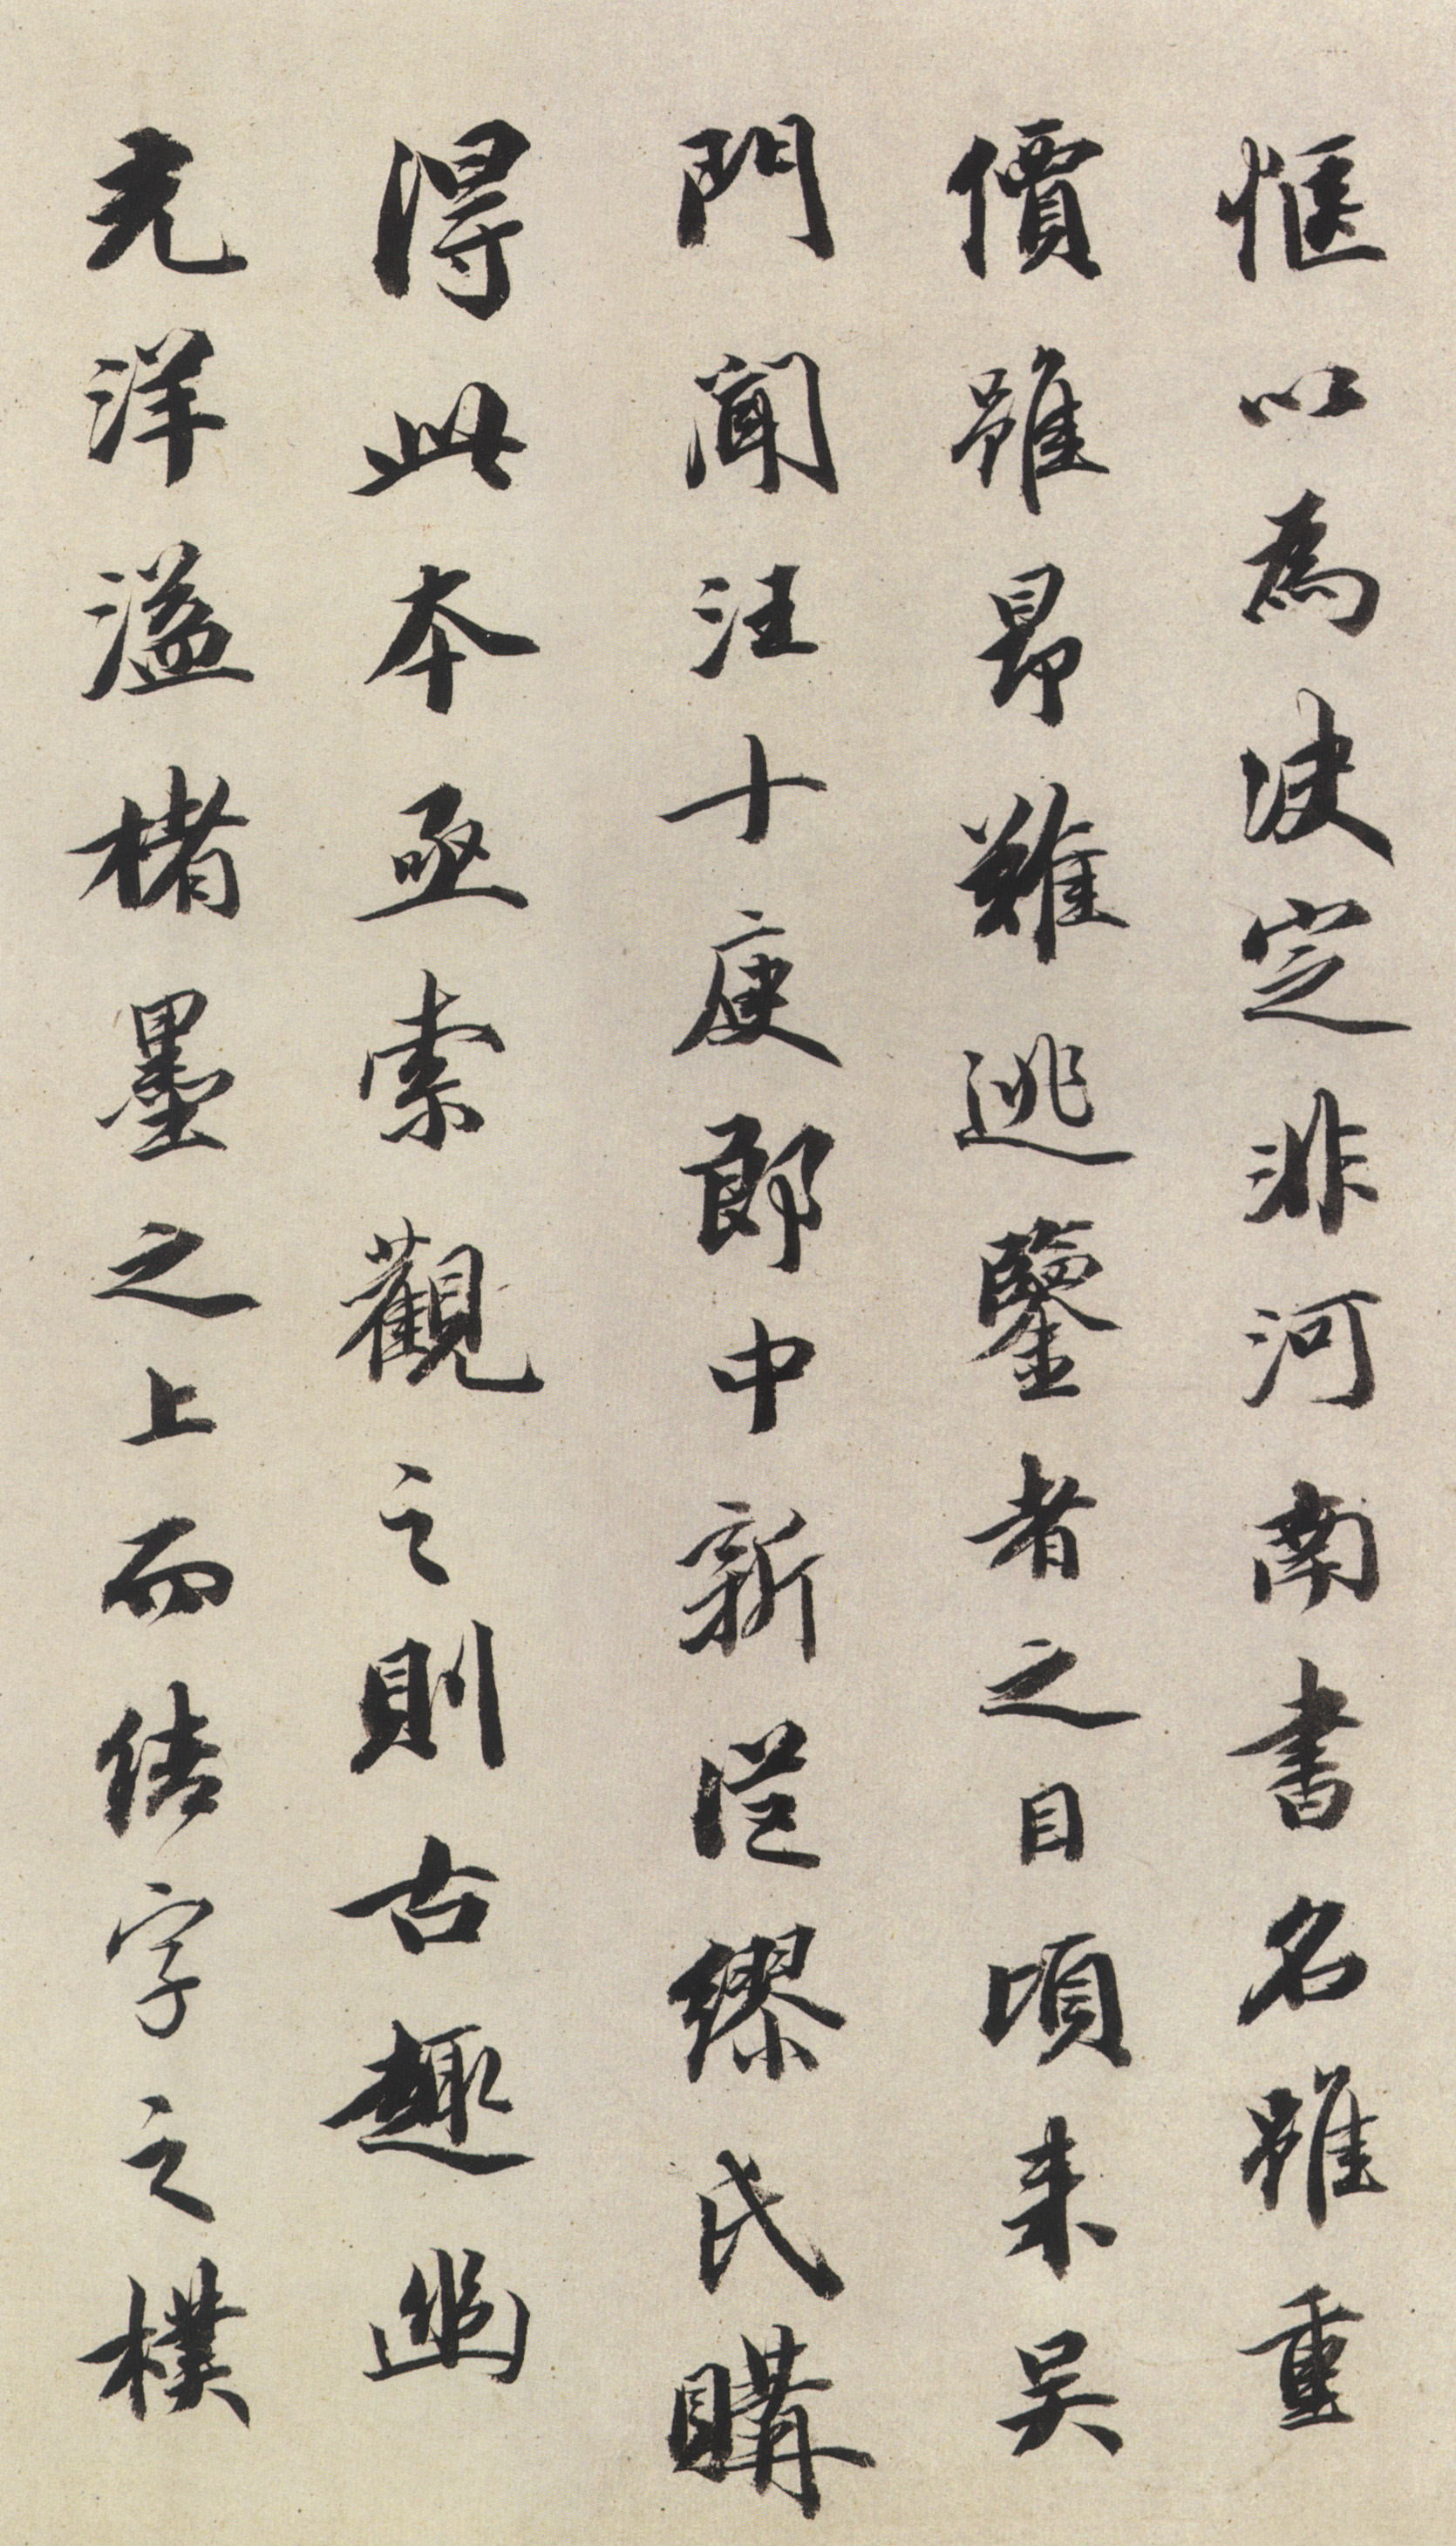 愜以為決定非河南書名雖重
價雖昂難逃鑒者之目頃来吳
門聞汪十庚郎中新從繆氏購
得此本亟索觀之則古趣幽
光洋溢楮墨之上而结字之樸